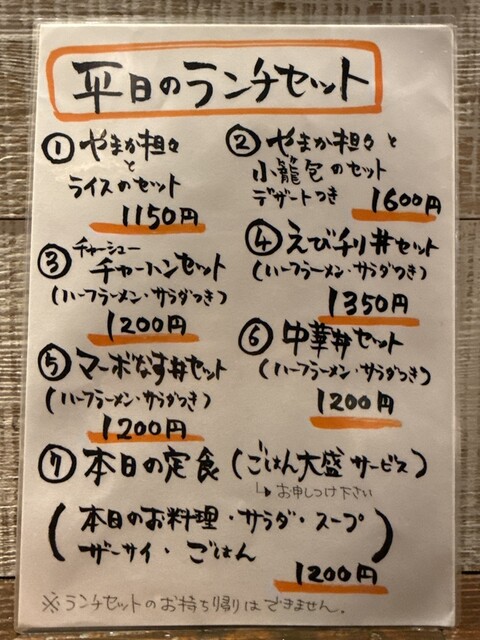 平日のランチセット
① やまか担々
と
ライスのセット
1150円
② やまか担々と
小籠包のセット
デザートつき 1600円
③ チャーシュー
チャーハンセット
(ハーフラーメン・サラダつき)
1200円
④ えびチリ丼セット
(ハーフラーメン・サラダつき)
1350円
⑤ マーボなす丼セット
(ハーフラーメン・サラダつき)
1200円
⑥ 中華丼セット
(ハーフラーメン・サラダつき)
1200円
⑦ 本日の定食 (ごはん大盛サービス)
↳ お申しつけ下さい
(本日のお料理・サラダ・スープ
ザーサイ・ごはん)
1200円
※ランチセットのお持ち帰りはできません.